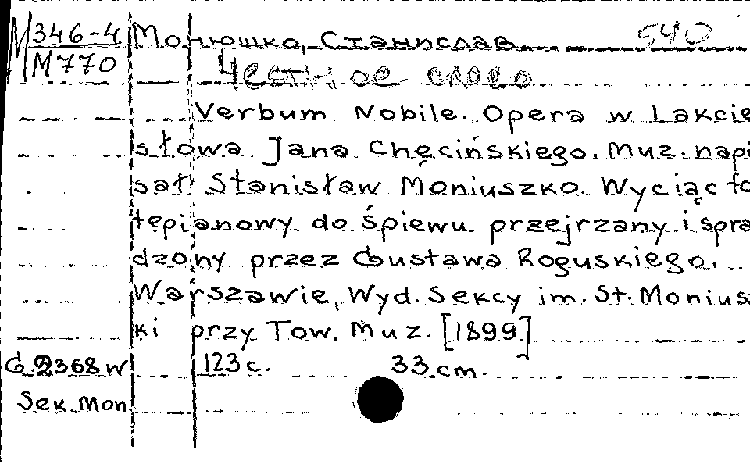 М346-4 Монюшко, Станислав 540
М770 Честное слово
Verbum Nobile. Opera w 1 akcie
słowa Jana Chęcińskiego. Muz. napi
sał Stanisław Moniuszko. Wyciąc fo
tepianowy do śpiewu przejrzany i spra
dzony przez Gustawa Roguskiego.
Warszawie, Wyd. Sekcy im. St. Monius
ki przy Tow. Muz. [1899]
G 2368 w 123 с. 33 cm.
Sek. Mon